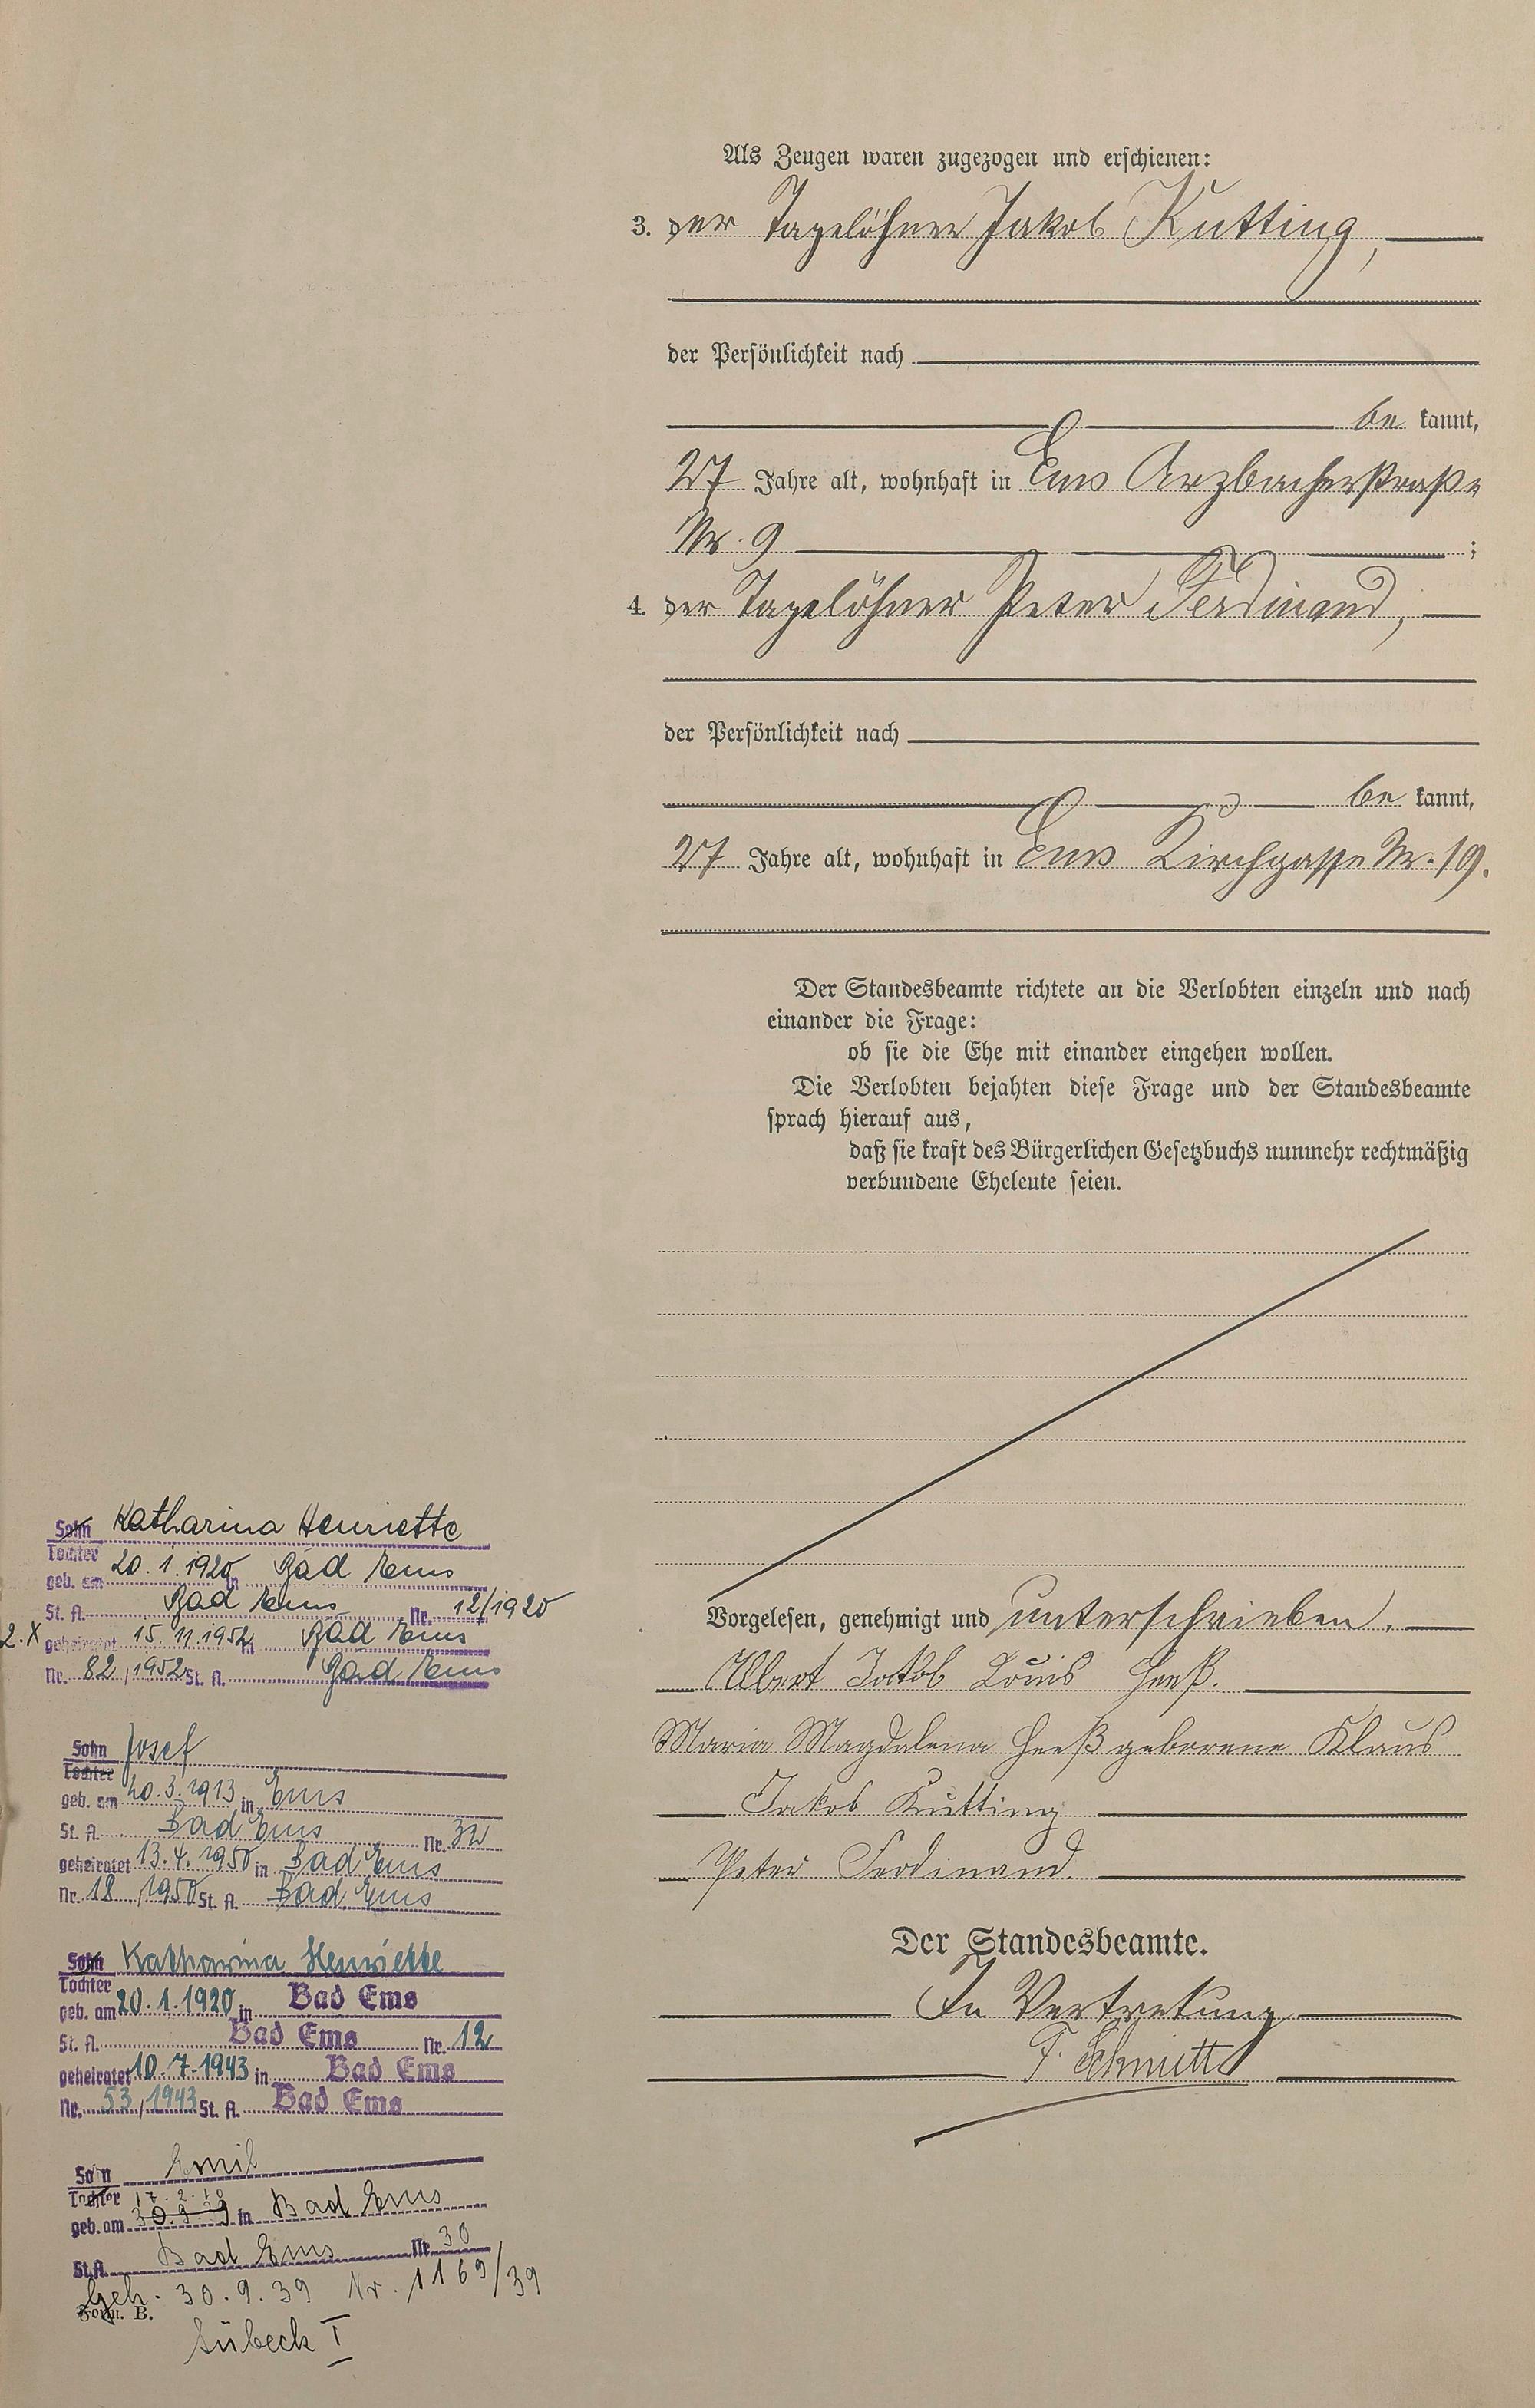 Als Zeugen waren zugezogen und erschienen:
3. der Tagelöhner Jakob Kutting,
der Persönlichkeit nach
be kannt,
27 Jahre alt, wohnhaft in Ems Arzbacherstraße
Nr. 9 ;
4. der Tagelöhner Peter Ferdinand,
der Persönlichkeit nach
be kannt,
27 Jahre alt, wohnhaft in Ems Kirchgasse Nr. 19.
Der Standesbeamte richtete an die Verlobten einzeln und nach
einander die Frage:
ob sie die Ehe mit einander eingehen wollen.
Die Verlobten bejahten diese Frage und der Standesbeamte
sprach hierauf aus,
daß sie kraft des Bürgerlichen Gesetzbuchs nunmehr rechtmäßig
verbundene Eheleute seien.
Vorgelesen, genehmigt und unterschrieben.
Albert Jakob Louis Heeß.
Maria Magdalena Heeß geborene Klaus
Jakob Kutting
Peter Ferdinand.
Der Standesbeamte.
In Vertretung
F. Schmitt
Sohn Katharina Henriette
Tochter
geb. am 20.1.1920 in Bad Ems
St. A. Bad Ems Nr. 12/1920
2. X geheiratet 15.11.1952 in Bad Ems
Nr. 82/1952 St. A. Bad Ems
Sohn Josef
Tochter
geb. am 20.3.1913 in Ems
St. A. Bad Ems Nr. 32
geheiratet 13.4.1950 in Bad Ems
Nr. 18/1950 St. A. Bad Ems
Sohn Katharina Henriette
Tochter
geb. am 20.1.1920 in Bad Ems
St. A. Bad Ems Nr. 12
geheiratet 10.7.1943 in Bad Ems
Nr. 53/1943 St. A. Bad Ems
Sohn Emil
Tochter 17.2.10
geb. am 30.9.39 in Bad Ems
St.A. Bad Ems Nr. 30
Geh. 30.9.39 Nr. 1169/39
Form. B.
Lübeck I